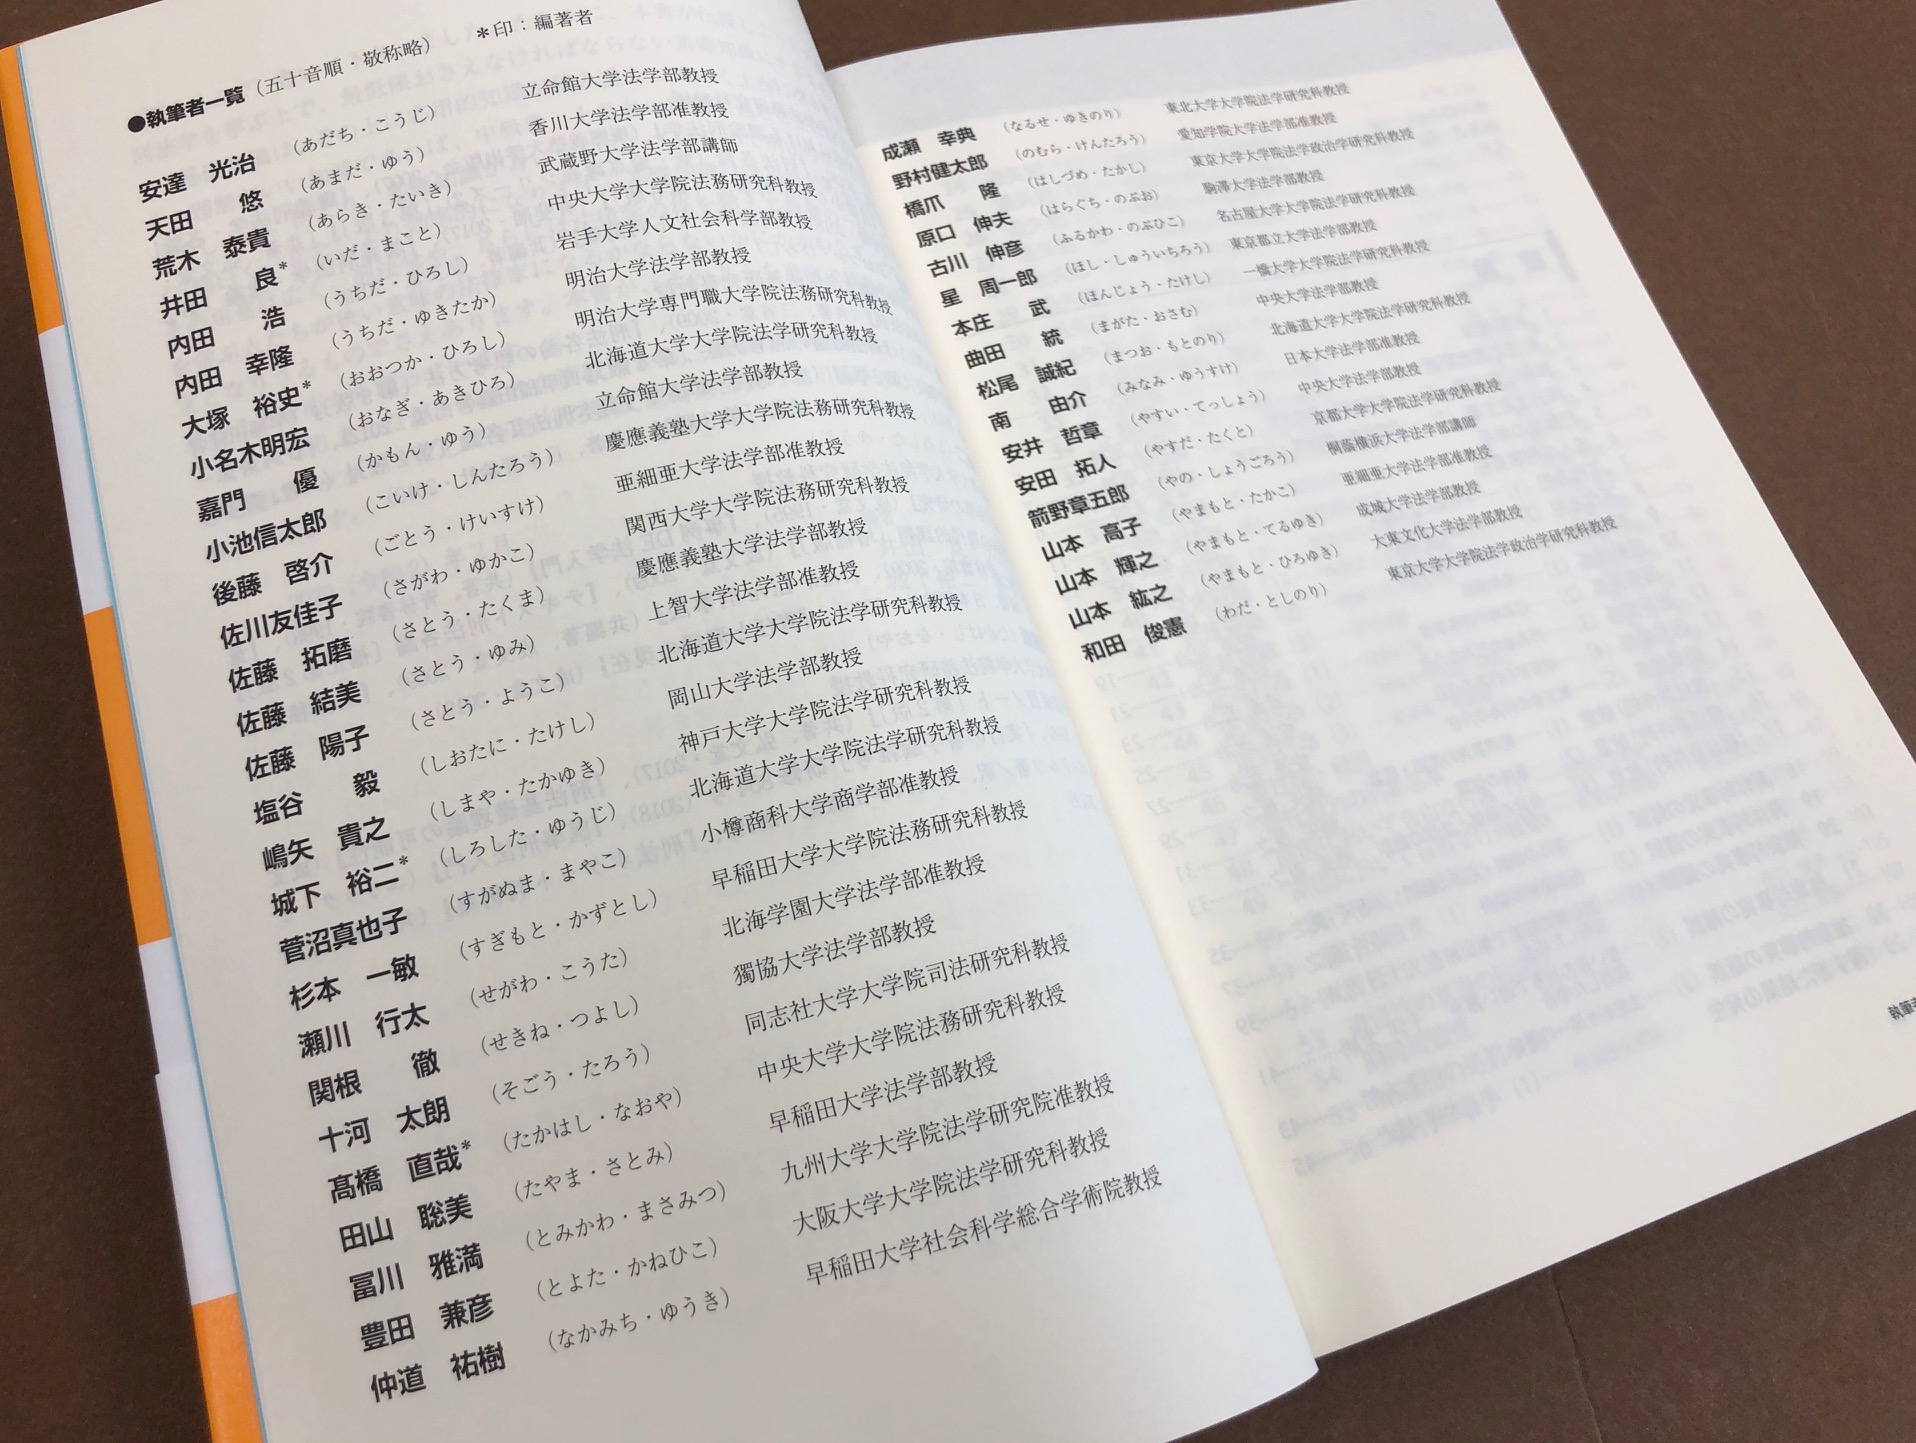 ●執筆者一覧（五十音順・敬称略）　＊印：編著者
安達　光治（あだち・こうじ）　立命館大学法学部教授
天田　　悠（あまだ・ゆう）　香川大学法学部准教授
荒木　泰貴（あらき・たいき）　武蔵野大学法学部講師
井田　　良*（いだ・まこと）　中央大学大学院法務研究科教授
内田　　浩（うちだ・ひろし）　岩手大学人文社会科学部教授
内田　幸隆（うちだ・ゆきたか）　明治大学法学部教授
大塚　裕史*（おおつか・ひろし）　明治大学専門職大学院法務研究科教授
小名木明宏（おなぎ・あきひろ）　北海道大学大学院法学研究科教授
嘉門　　優（かもん・ゆう）　立命館大学法学部教授
小池信太郎（こいけ・しんたろう）　慶應義塾大学大学院法務研究科教授
後藤　啓介（ごとう・けいすけ）　亜細亜大学法学部准教授
佐川友佳子（さがわ・ゆかこ）　関西大学大学院法務研究科教授
佐藤　拓磨（さとう・たくま）　慶應義塾大学法学部教授
佐藤　結美（さとう・ゆみ）　上智大学法学部准教授
佐藤　陽子（さとう・ようこ）　北海道大学大学院法学研究科教授
塩谷　　毅（しおたに・たけし）　岡山大学法学部教授
嶋矢　貴之（しまや・たかゆき）　神戸大学大学院法学研究科教授
城下　裕二*（しろした・ゆうじ）　北海道大学大学院法学研究科教授
菅沼真也子（すがぬま・まやこ）　小樽商科大学商学部准教授
杉本　一敏（すぎもと・かずとし）　早稲田大学大学院法務研究科教授
瀬川　行太（せがわ・こうた）　北海学園大学法学部准教授
関根　　徹（せきね・つよし）　獨協大学法学部教授
十河　太朗（そごう・たろう）　同志社大学大学院司法研究科教授
髙橋　直哉*（たかはし・なおや）　中央大学大学院法務研究科教授
田山　聡美（たやま・さとみ）　早稲田大学法学部教授
冨川　雅満（とみかわ・まさみつ）　九州大学大学院法学研究院准教授
豊田　兼彦（とよた・かねひこ）　大阪大学大学院法学研究科教授
仲道　祐樹（なかみち・ゆうき）　早稲田大学社会科学総合学術院教授
成瀬　幸典（なるせ・ゆきのり）　東北大学大学院法学研究科教授
野村健太郎（のむら・けんたろう）　愛知学院大学法学部准教授
橋爪　　隆（はしづめ・たかし）　東京大学大学院法学政治学研究科教授
原口　伸夫（はらぐち・のぶお）　駒澤大学法学部教授
古川　伸彦（ふるかわ・のぶひこ）　名古屋大学大学院法学研究科教授
星　周一郎（ほし・しゅういちろう）　東京都立大学法学部教授
本庄　　武（ほんじょう・たけし）　一橋大学大学院法学研究科教授
曲田　　統（まがた・おさむ）　中央大学法学部教授
松尾　誠紀（まつお・もとのり）　北海道大学大学院法学研究科教授
南　　由介（みなみ・ゆうすけ）　日本大学法学部准教授
安井　哲章（やすい・てっしょう）　中央大学法学部教授
安田　拓人（やすだ・たくと）　京都大学大学院法学研究科教授
箭野章五郎（やの・しょうごろう）　桐蔭横浜大学法学部講師
山本　高子（やまもと・たかこ）　亜細亜大学法学部准教授
山本　輝之（やまもと・てるゆき）　成城大学法学部教授
山本　紘之（やまもと・ひろゆき）　大東文化大学法学部教授
和田　俊憲（わだ・としのり）　東京大学大学院法学政治学研究科教授